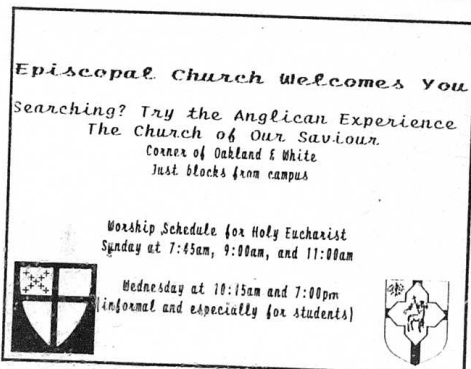 Episcopal Church Welcomes You
Searching? Try the Anglican Experience
The Church of Our Saviour
Corner of Oakland & White
Just blocks from campus
Worship Schedule for Holy Eucharist
Sunday at 7:45am, 9:00am, and 11:00am
Wednesday at 10:15am and 7:00pm
(informal and especially for students)